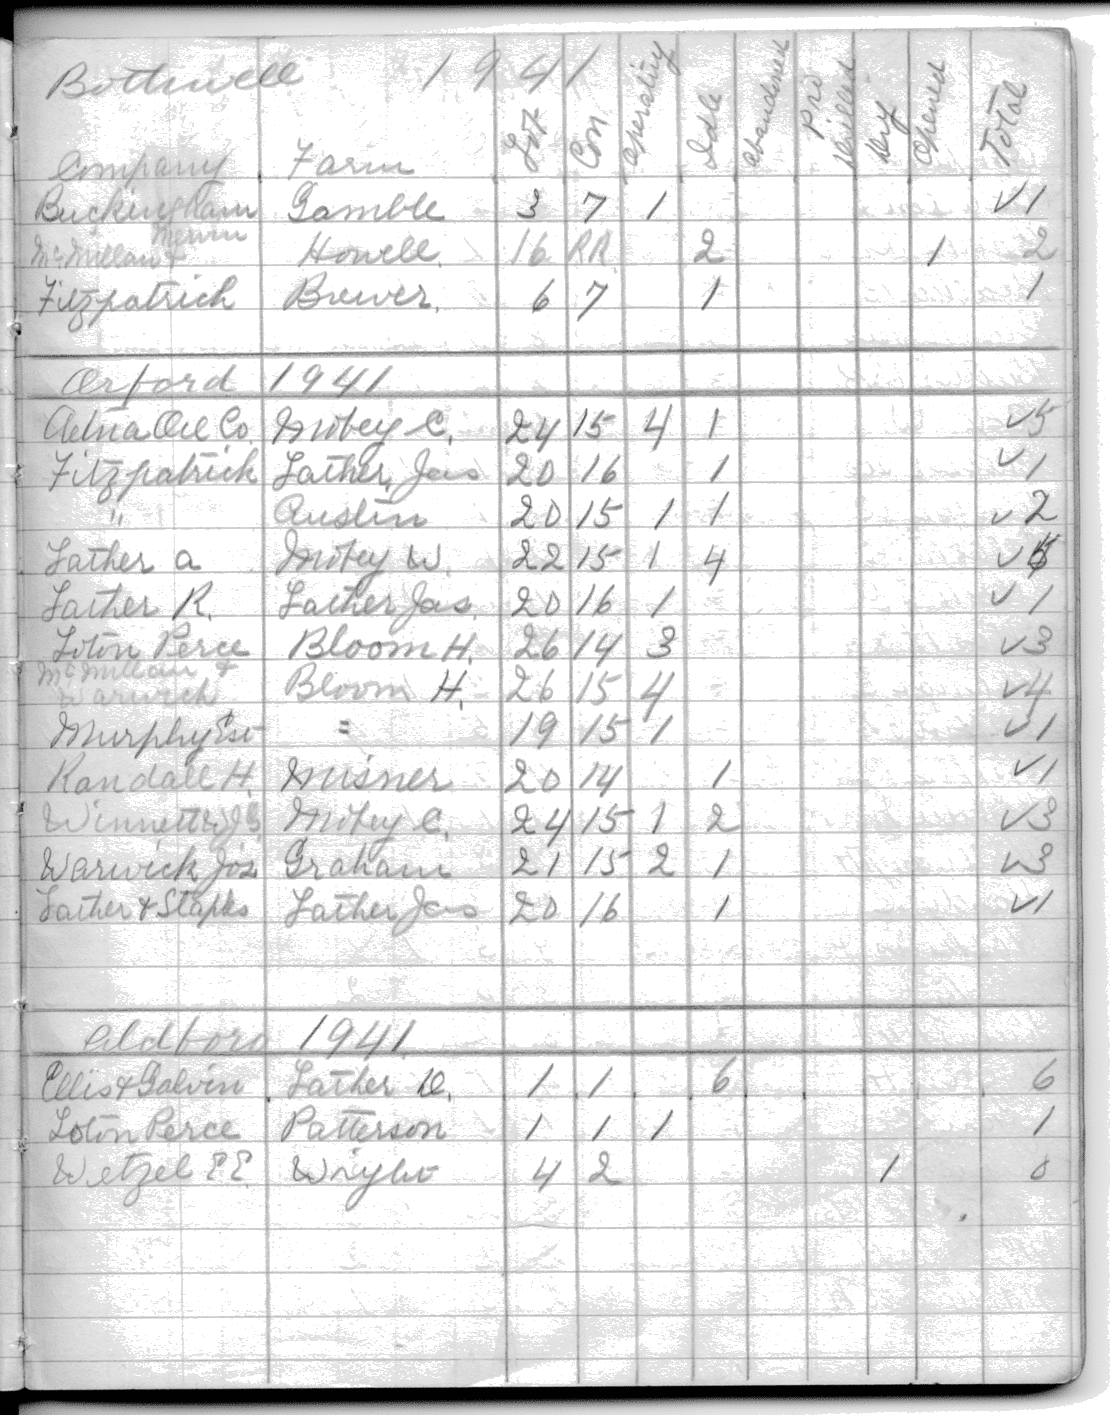 Bothwell 1941
Company Farm Lot Con Operating Idle Abandoned Pro Drilled Dry Opened Total
Buckingham Gamble 3 7 1 ✓1
McMillan & Mervin Howell. 16 RR 2 1 2
Fitzpatrick Brewer. 6 7 1 1
Orford 1941
Aetna Oil Co. Mobey C. 24 15 4 1 ✓5
Fitzpatrick Lather, Jas 20 16 1 ✓1
" Austin 20 15 1 1 ✓2
Lather A Mobey W. 22 15 1 4 ✓5
Lather R. Lather Jas. 20 16 1 ✓1
Loton Perce Bloom H. 26 14 3 ✓3
McMillan & Warwick Bloom H. 26 15 4 ✓4
Murphy Est = 19 15 1 ✓1
Randall H. Misner 20 14 1 ✓1
Winnett Mobey C. 24 15 1 2 ✓3
Warwick Jos Graham 21 15 2 1 ✓3
Lather & Staples Lather Jas 20 16 1 ✓1
Aldboro 1941
Ellis & Galvin Lather D. 1 1 6 6
Loton Perce Patterson 1 1 1 1
Wetzel E E. Wright 4 2 1 0